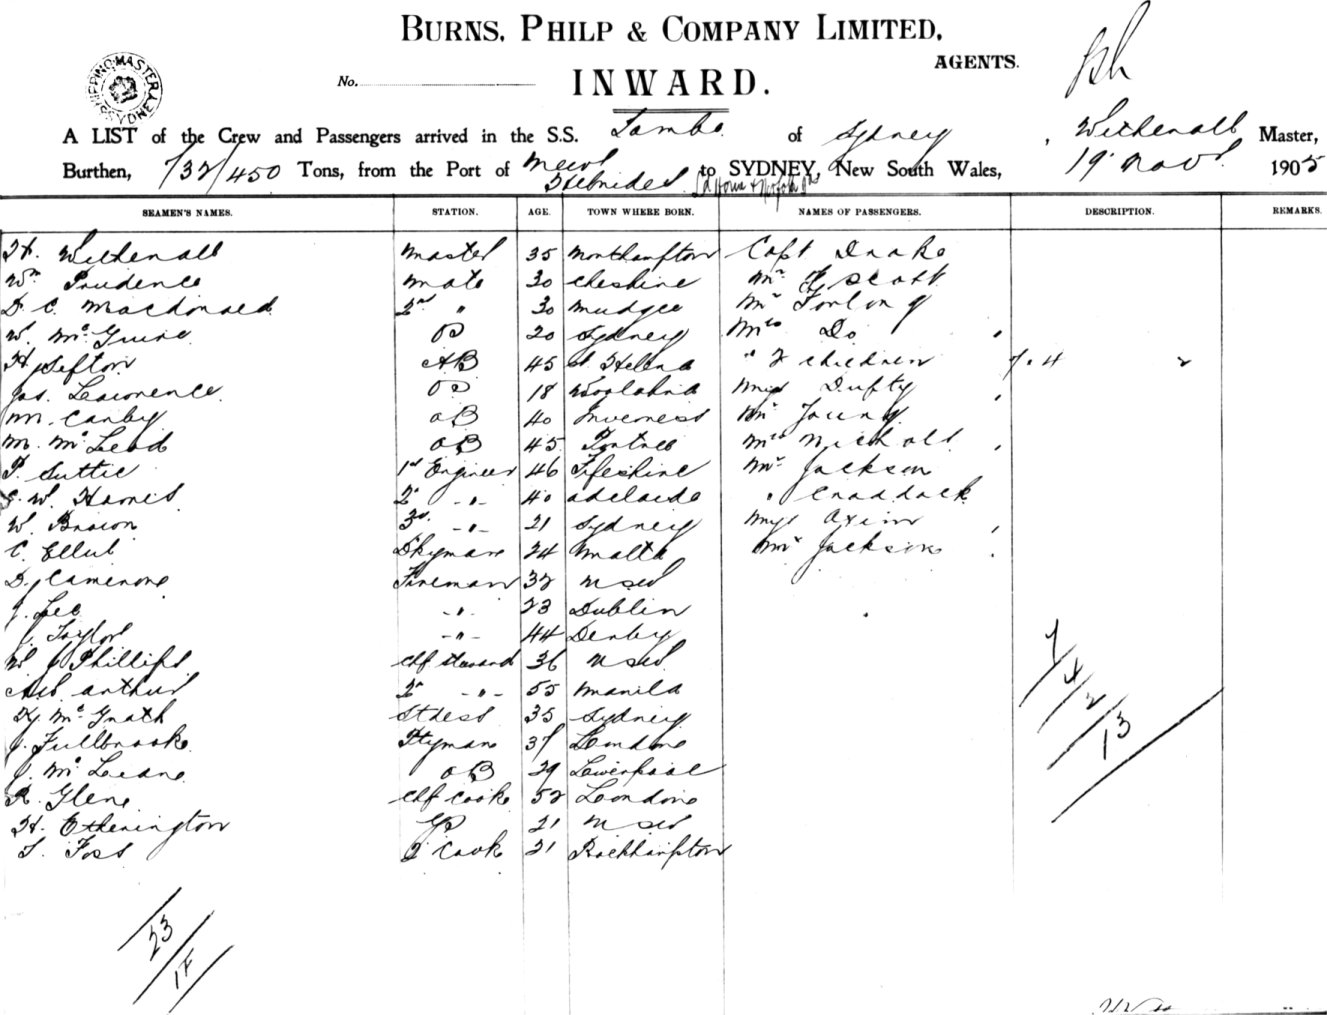 BURNS, PHILP & COMPANY LIMITED,
AGENTS.
No.
INWARD.
SHIPPING MASTER SYDNEY
A LIST of the Crew and Passengers arrived in the S.S. Tambo of Sydney, Withenall Master,
Burthen, 732/450 Tons, from the Port of New Hebrides Ld Howe & Norfolk Is to SYDNEY, New South Wales, 19 Novr 1905
SEAMEN'S NAMES. STATION. AGE. TOWN WHERE BORN. NAMES OF PASSENGERS. DESCRIPTION. REMARKS.
H. Withenall Master 35 Northampton Capt Drake
Wm Prudence Mate 30 Cheshire Mr Scott
D. C. Macdonald 2nd " 30 Mudgee Mr
W. McGuire OS 20 Sydney Mrs Do
H. Sefton AB 45 St Helena " 2 children 7. 4 2
Jas. Lawrence OS 18 Woolahra Miss Dufty
M. Canby AB 40 Inverness Mr Young
M. McLeod AB 45 Portree Mrs Nicholl
P. Suttie 1st Engineer 46 Fifeshire Mr Jackson
W. Harris 2nd -"- 40 Adelaide " Craddock
W. Brown 3rd -"- 21 Sydney Miss
C. Ellul Dkyman 24 Malta Mr Jackson
D. Camerone Fireman 32 NSW
J. Lee -"- 23 Dublin
J. Taylor -"- 44 Derby
W J Phillips Chf Steward 36 NSW
Arthur 2nd -"- 55 Manila
McGrath Stdess 35 Sydney
J. Fullbrooke Ptyman 37 London
J. McLeane AB 29 Liverpool
R. Glene Chf Cook 52 London
H. Etherington 21 NSW
T. Foss 2 Cook 21 Rockhampton
7
4
2
13
23
1F